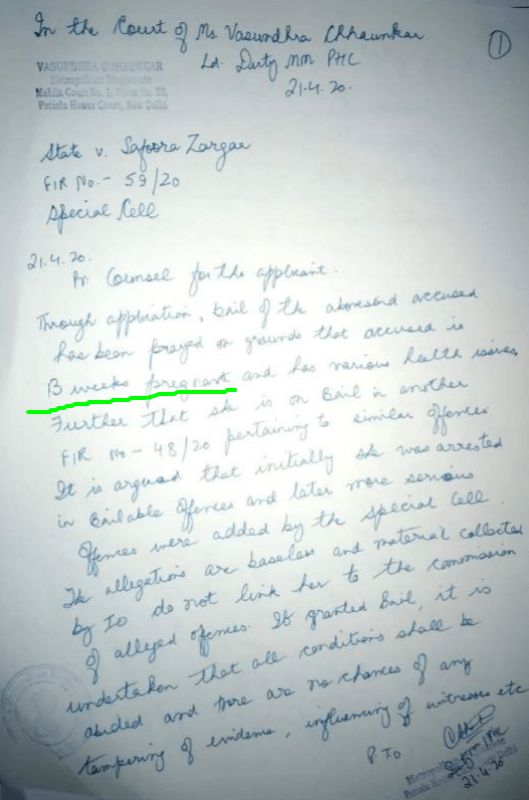 In the Court of Ms. Vasundhra Chhaunkar
①
Ld. Duty MM PHC
21.4.20.
VASUNDHRA CHHAUNKAR
Metropolitan Magistrate
Mahila Court No. 1, Room No. 30,
Patiala House Court, New Delhi
State v. Safoora Zargar
FIR No.- 59/20
Special Cell
21.4.20.
Pr: Counsel for the applicant.
Through application, bail of the aforesaid accused
has been prayed on grounds that accused is
13 weeks pregnant and has various health issues,
Further that she is on Bail in another
FIR no - 48/20 pertaining to similar offences.
It is argued that initially she was arrested
in Bailable offences and later more serious
offences were added by the Special Cell.
The allegations are baseless and material collected
by IO do not link her to the commission
of alleged offences. If granted Bail, it is
undertaken that all conditions shall be
abided and there are no chances of any
tampering of evidence, influencing of witnesses etc
P.TO
Duty MM/PHC
21.4.20